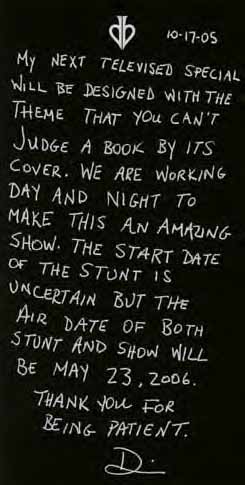 10-17-05
My NEXT TELEVISED SPECIAL
WILL BE DESIGNED WITH THE
THEME THAT YOU CAN'T
JUDGE A BOOK BY ITS
COVER. WE ARE WORKING
DAY AND NIGHT TO
MAKE THIS AN AMAZING
SHOW. THE START DATE
OF THE STUNT IS
UNCERTAIN BUT THE
AIR DATE OF BOTH
STUNT AND SHOW WILL
BE MAY 23, 2006.
THANK YOU FOR
BEING PATIENT.
D.